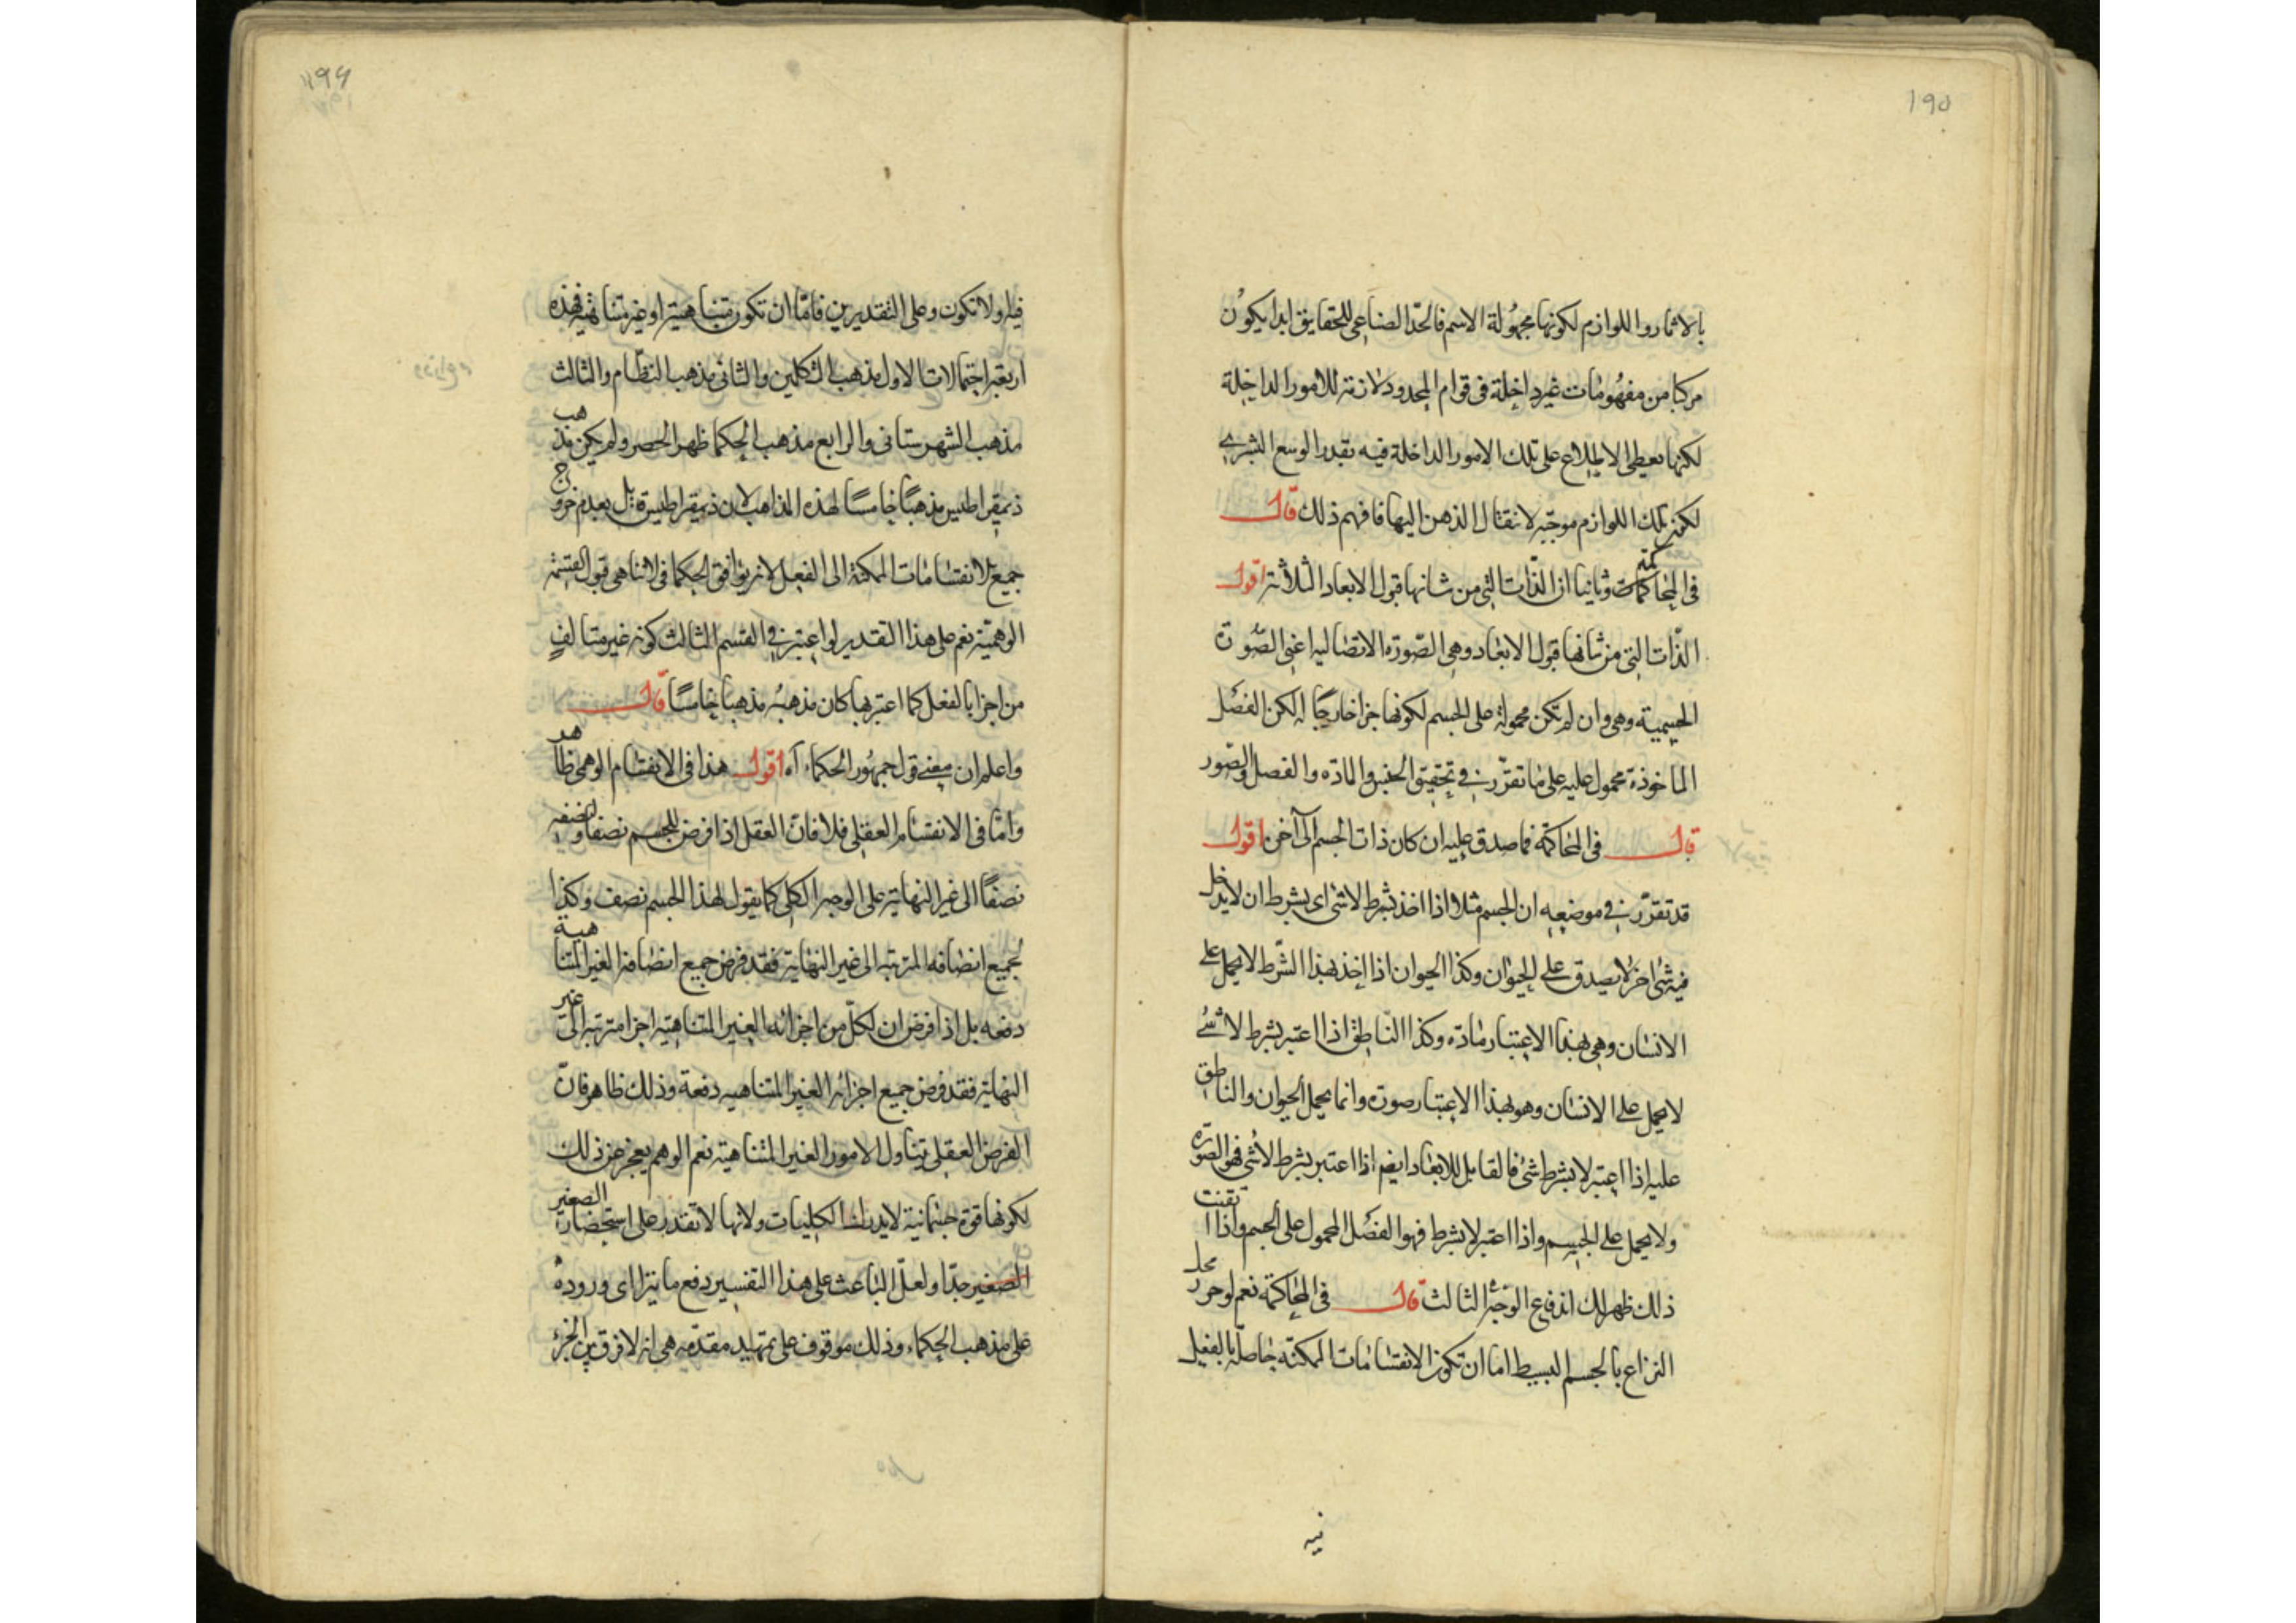 ١٩٥
بالاثار واللوازم لكونها مجهولة الاسم فالحد الصناعى للحقايق ابدا يكون
مركبا من مفهومات غير داخلة فى قوام المحدود لازمة للامور الداخلة
لكنها يعطى الاطلاع على تلك الامور الداخلة فيه بقدر الوسع البشرى
لكن تلك اللوازم موجبة لانتقال الذهن اليها فافهم ذلك قال
فى المحاكمات وثانيا ان الذات التى من شانها قبول الابعاد الثلاثة اقول
الذات التى من شانها قبول الابعاد وهى الصورة الاتصالية اعنى الصورة
الجسمية وهى وان لم تكن محمولة على الجسم لكونها جزا خارجا له لكن الفصل
الماخوذة محمول عليه على ما تقرر فى تحقيق الجنس والمادة والفصل والصور
قال فى المحاكمة فما صدق عليه ان كان ذات الجسم الى آخره اقول
قد تقرر فى موضعه ان الجسم مثلا اذا اخذ بشرط لاشى اى بشرط ان لا يدخل
فيه شئ اخر لا يصدق على الحيوان وكذا الحيوان اذا اخذ بهذا الشرط لا يحمل على
الانسان وهى بهذا الاعتبار مادة وكذا الناطق اذا اعتبر بشرط لا شئ
لا يحمل على الانسان وهو بهذا الاعتبار صورة وانما يحمل الحيوان والناطق
عليه اذا اعتبر لا بشرط شئ فالقابل للابعاد ايضم اذا اعتبر بشرط لا شى فهو الصورة
ولا يحمل على الجسم واذا اعتبر لا بشرط فهو الفصل المحمول على الجسم واذا اتقنت
ذلك ظهر لك اندفاع الوجه الثالث قال فى المحاكمة نعم لو حرر محل
النزاع بالجسم البسيط اما ان تكون الانقسامات الممكنة حاصلة بالفعل
فيه
١٩٦
فيه او لا تكون وعلى التقديرين فاما ان تكون متناهية او غير متناهية فهذه
اربعة احتمالات الاول مذهب المتكلمين والثانى مذهب النظام والثالث
مذهب الشهرستانى والرابع مذهب الحكما ظهر الحصر ولم يكن مذهب
ذيمقراطيس مذهبا خامسا لهذه المذاهب لان ذيمقراطيس قايل بعدم خروج
جميع الانقسامات الممكنة الى الفعل لانه يوافق الحكما فى لاتناهى قبول القسمة
الوهمية نعم على هذا التقدير لو اعتبر فى القسم الثالث كونه غير متالف
من اجزا بالفعل كما اعتبرها كان مذهبه مذهبا خامسا قال
واعلم ان معنى قول جمهور الحكماء آه اقول هذا فى الانقسام الوهمى ظاهر
واما فى الانقسام العقلى فلا فان العقل اذا فرض للجسم نصفا ولنصفه
نصفا الى غير النهاية على الوجه الكلى كما يقول لهذا الجسم نصف وكذا
لجميع انصافه المرتبة الى غير النهاية فقد فرض جميع انصافه الغير المتناهية
دفعه بل اذا فرض ان لكل من اجزائه الغير المتناهية اجزا مترتبه الى غير
النهاية فقد فرض جميع اجزائه الغير المتناهيه دفعة وذلك ظاهر فان
الفرض العقلى يتناول الامور الغير المتناهية نعم الوهم يعجز عن ذلك
لكونها قوة جسمانية لا يدرك الكليات ولانها لا تقدر على استحضار الصغير
الصغير جدا ولعل الباعث على هذا التفسير دفع ما يتراى وروده
على مذهب الحكماء وذلك موقوف على تمهيد مقدمه هى انه لا فرق بين الجزئ